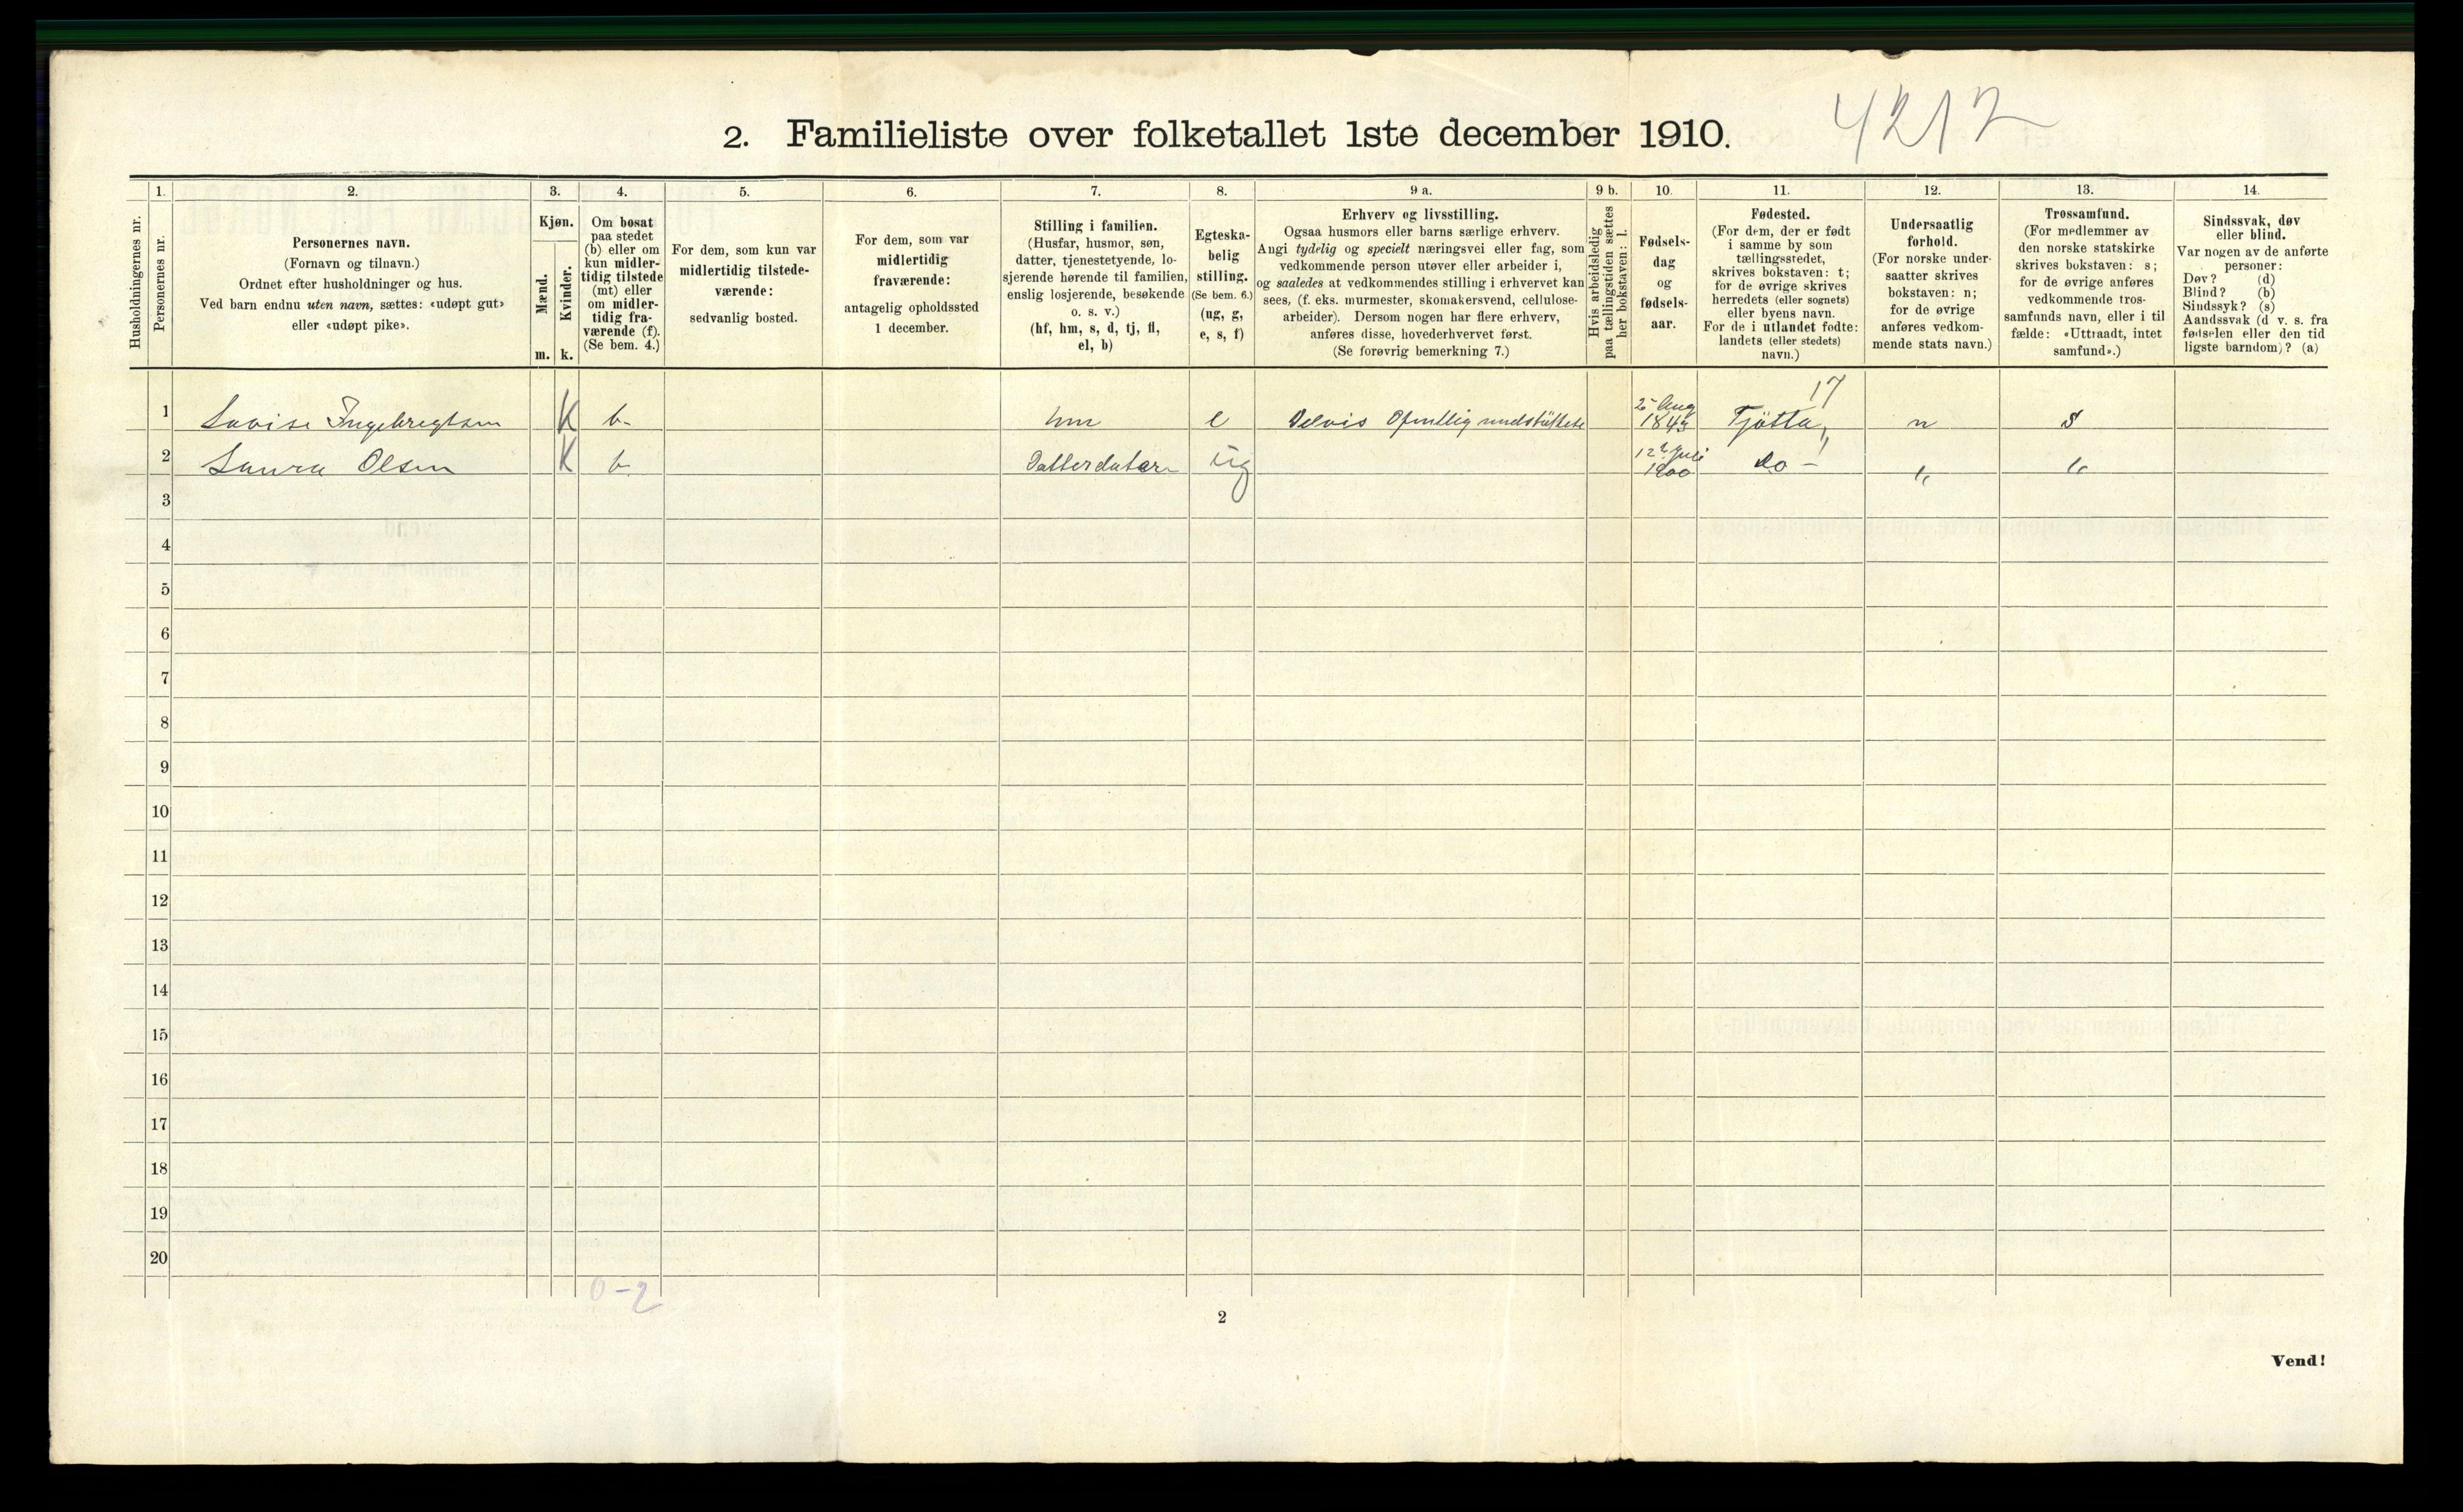 4212
2. Familieliste over folketallet 1ste december 1910.
1. 2. 3. 4. 5. 6. 7. 8. 9 a. 9 b. 10. 11. 12. 13. 14.
Husholdningernes nr.
Personernes nr.
Personernes navn.
(Fornavn og tilnavn.)
Ordnet efter husholdninger og hus.
Ved barn endnu uten navn, sættes: «udøpt gut»
eller «udøpt pike».
Kjøn.
Mænd.
Kvinder.
m. k.
Om bosat
paa stedet
(b) eller om
kun midler-
tidig tilstede
(mt) eller
om midler-
tidig fra-
værende (f).
(Se bem. 4.)
For dem, som kun var
midlertidig tilstede-
værende:
sedvanlig bosted.
For dem, som var
midlertidig
fraværende:
antagelig opholdssted
1 december.
Stilling i familien.
(Husfar, husmor, søn,
datter, tjenestetyende, lo-
sjerende hørende til familien,
enslig losjerende, besøkende
o. s. v.)
(hf, hm, s, d, tj, fl,
el, b)
Egteska-
belig
stilling.
(Se bem. 6.)
(ug, g,
e, s, f)
Erhverv og livsstilling.
Ogsaa husmors eller barns særlige erhverv.
Angi tydelig og specielt næringsvei eller fag, som
vedkommende person utøver eller arbeider i,
og saaledes at vedkommendes stilling i erhvervet kan
sees, (f. eks. murmester, skomakersvend, cellulose-
arbeider). Dersom nogen har flere erhverv,
anføres disse, hovederhvervet først.
(Se forøvrig bemerkning 7.)
Hvis arbeidsledig
paa tællingstiden sættes
her bokstaven: l.
Fødsels-
dag
og
fødsels-
aar.
Fødested.
(For dem, der er født
i samme by som
tællingsstedet,
skrives bokstaven: t;
for de øvrige skrives
herredets (eller sognets)
eller byens navn.
For de i utlandet fødte:
landets (eller stedets)
navn.)
Undersaatlig
forhold.
(For norske under-
saatter skrives
bokstaven: n;
for de øvrige
anføres vedkom-
mende stats navn.)
Trossamfund.
(For medlemmer av
den norske statskirke
skrives bokstaven: s;
for de øvrige anføres
vedkommende tros-
samfunds navn, eller i til
fælde: «Uttraadt, intet
samfund».)
Sindssvak, døv
eller blind.
Var nogen av de anførte
personer:
Døv? (d)
Blind? (b)
Sindssyk? (s)
Aandssvak (d v. s. fra
fødselen eller den tid
ligste barndom)? (a)
17
1 Lovise Ingebregtsen K b. hm e Delvis Ofentlig understüttet 1843 Tjötta n s
2 Laura Olsen K b. Datterdater ug 12 Juli 1900 do - " "
3
4
5
6
7
8
9
10
11
12
13
14
15
16
17
18
19
20
0-2
2
Vend!